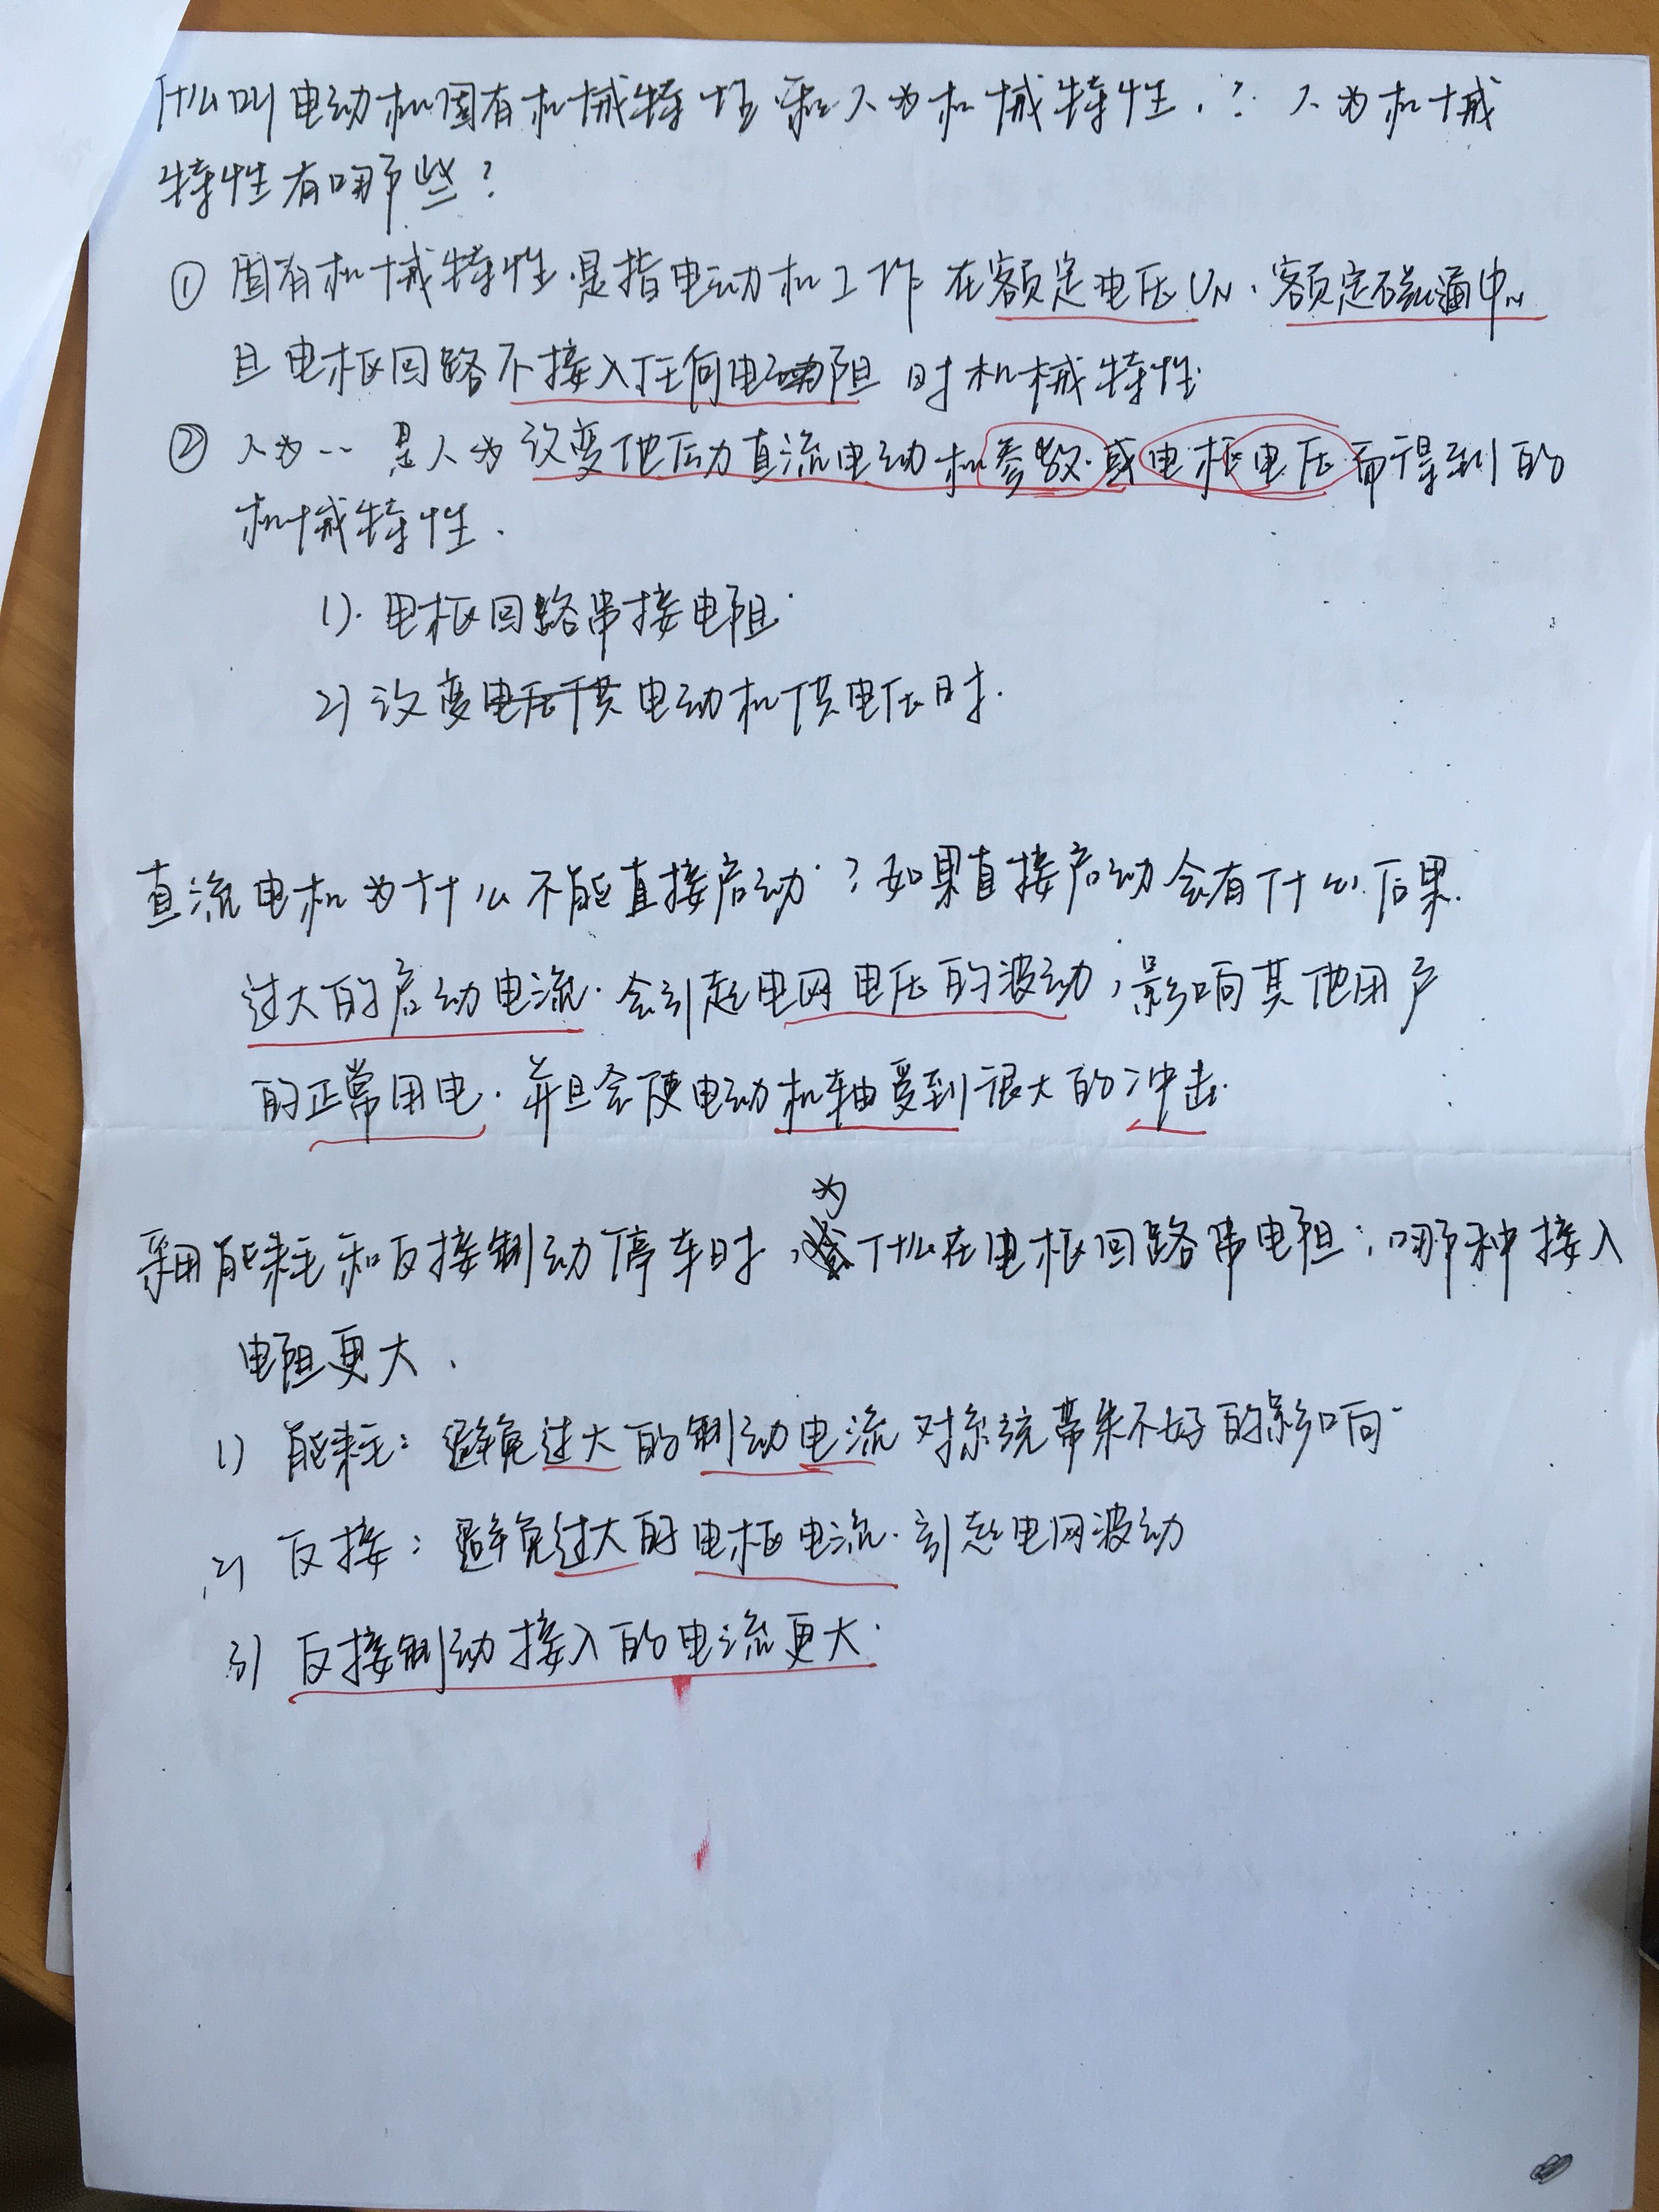 什么叫电动机固有机械特性和人为机械特性.？人为机械
特性有哪些？
① 固有机械特性是指电动机工作在额定电压UN、额定磁通ΦN
且电枢回路不接入任何电阻时机械特性.
② 人为… 是人为改变他励直流电动机参数或电枢电压而得到的
机械特性.
1). 电枢回路串接电阻.
2) 改变电动机供电压时.
直流电机为什么不能直接启动？如果直接启动会有什么后果.
过大的启动电流.会引起电网电压的波动,影响其他用户
的正常用电.并且会使电动机轴受到很大的冲击.
采用能耗和反接制动停车时,为什么在电枢回路串电阻;哪种接入
电阻更大.
1) 能耗：避免过大的制动电流对系统带来不好的影响
2) 反接：避免过大的电枢电流.引起电网波动
3) 反接制动接入的电流更大.